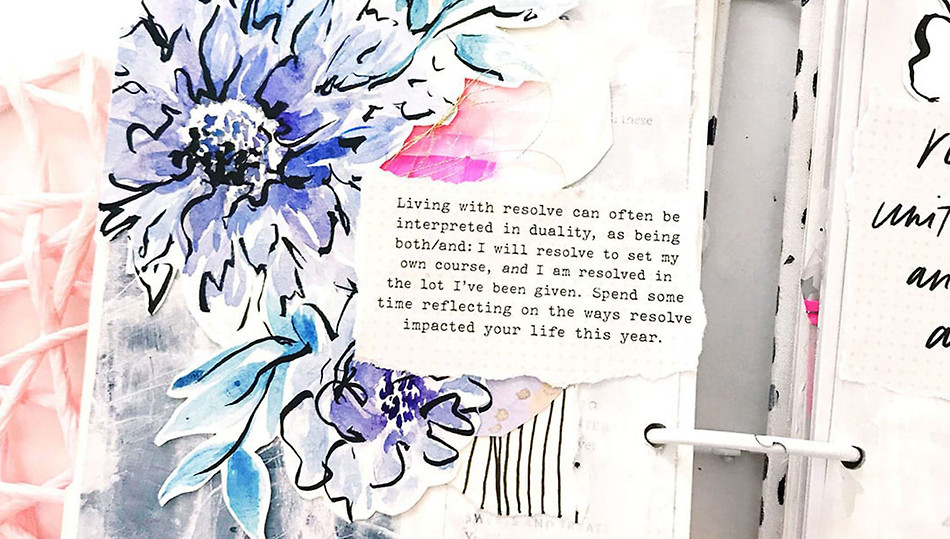 Living with resolve can often be
interpreted in duality, as being
both/and: I will resolve to set my
own course, and I am resolved in
the lot I've been given. Spend some
time reflecting on the ways resolve
impacted your life this year.